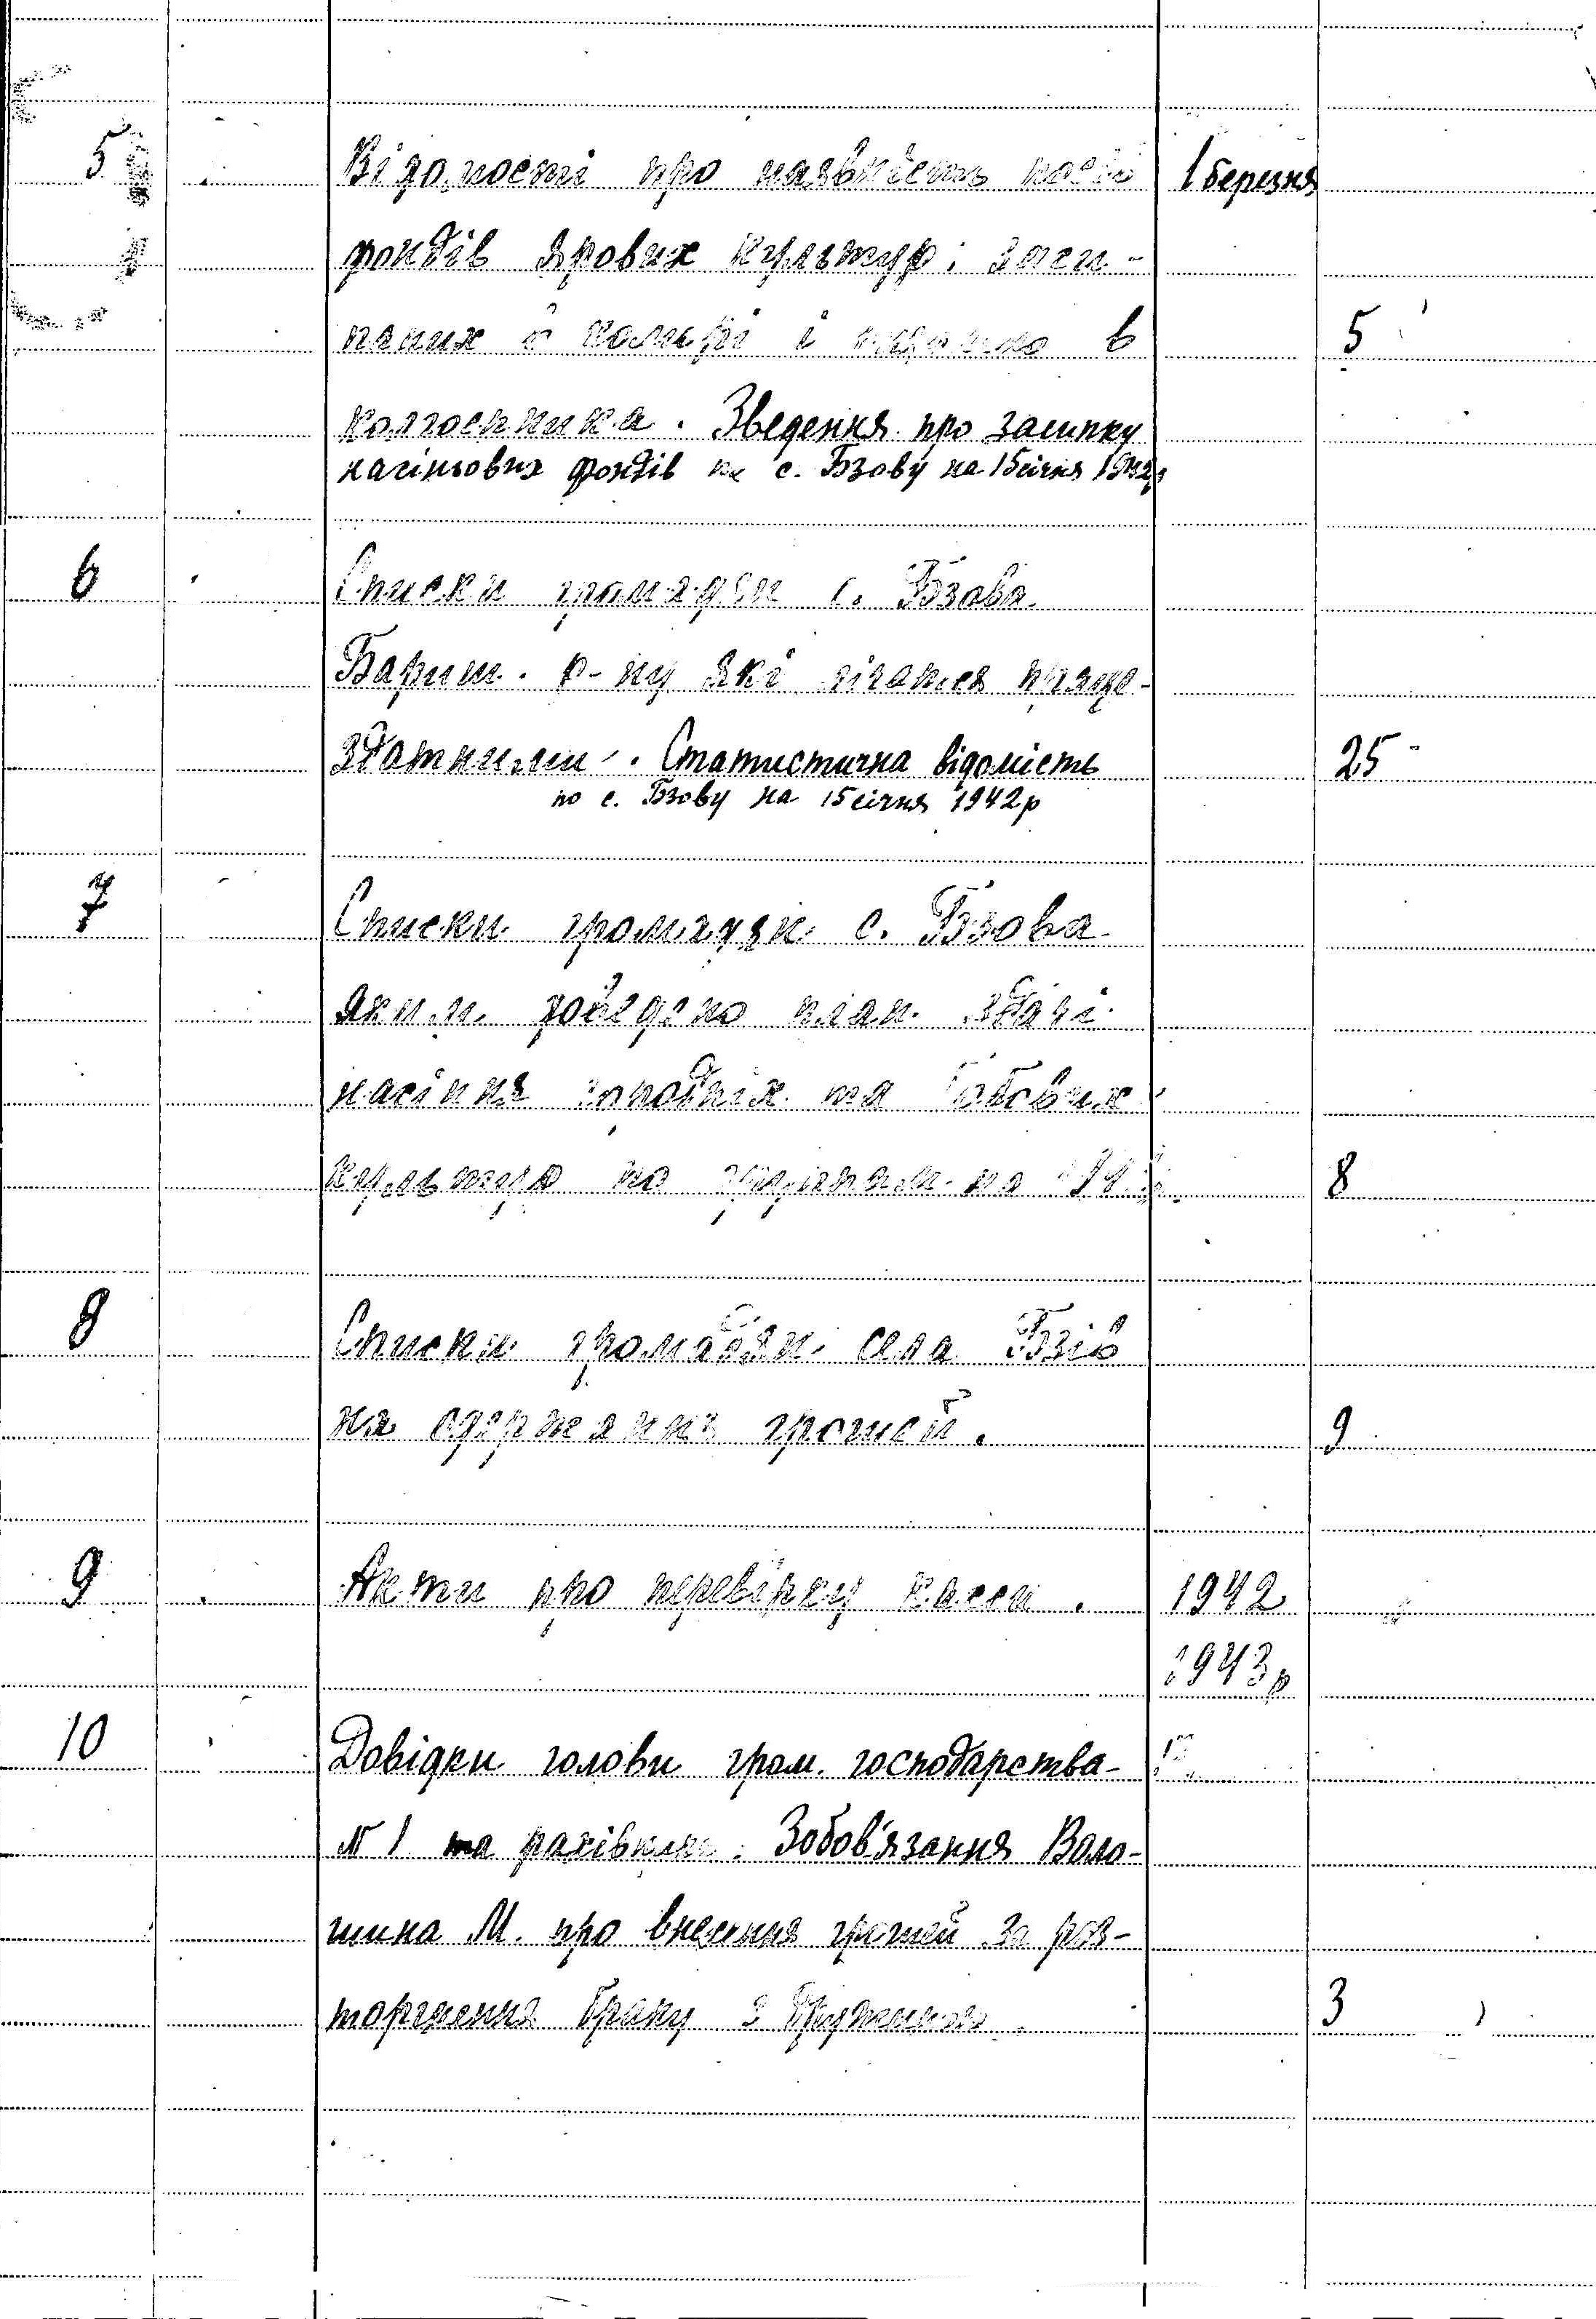 5 Відомості про наявність 1 березня
фондів ярових культур; заси-
паних в коморі і в 5
колгоспника. Зведення про засипку
насіньових фондів по с. Бзову на 15 січня 1942р
6 Списки громадян с. Бзова
Бариш. р-ну які лічаться праце-
здатними. Статистична відомість 25
по с. Бзову на 15 січня 1942р
7 Списки громадян с. Бзова
яким доведено план здачі
насіння городніх та бобових
культур по на 8
8 Списки громадян села Бзів
на одержання грошей. 9
9 Акти про перевірку касси. 1942
1943р
10 Довідки голови гром. господарства
№ 1 та рахівника. Зобов'язання Воло-
шина М. про внесення грошей за роз-
торження браку з 3